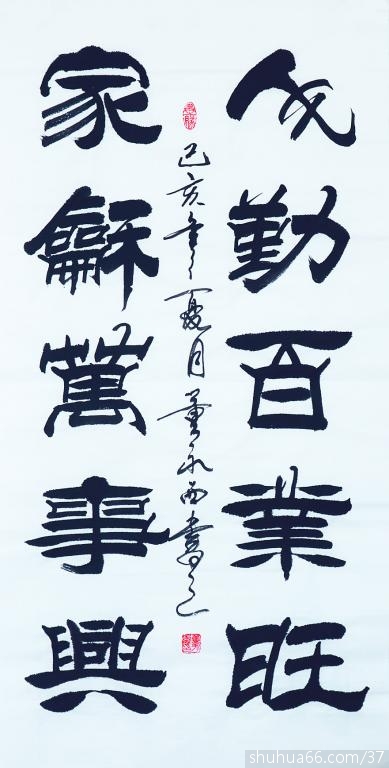 人勤百業旺
己亥年之夏月董永西書之
家龢萬事興
shuhua66.com/37